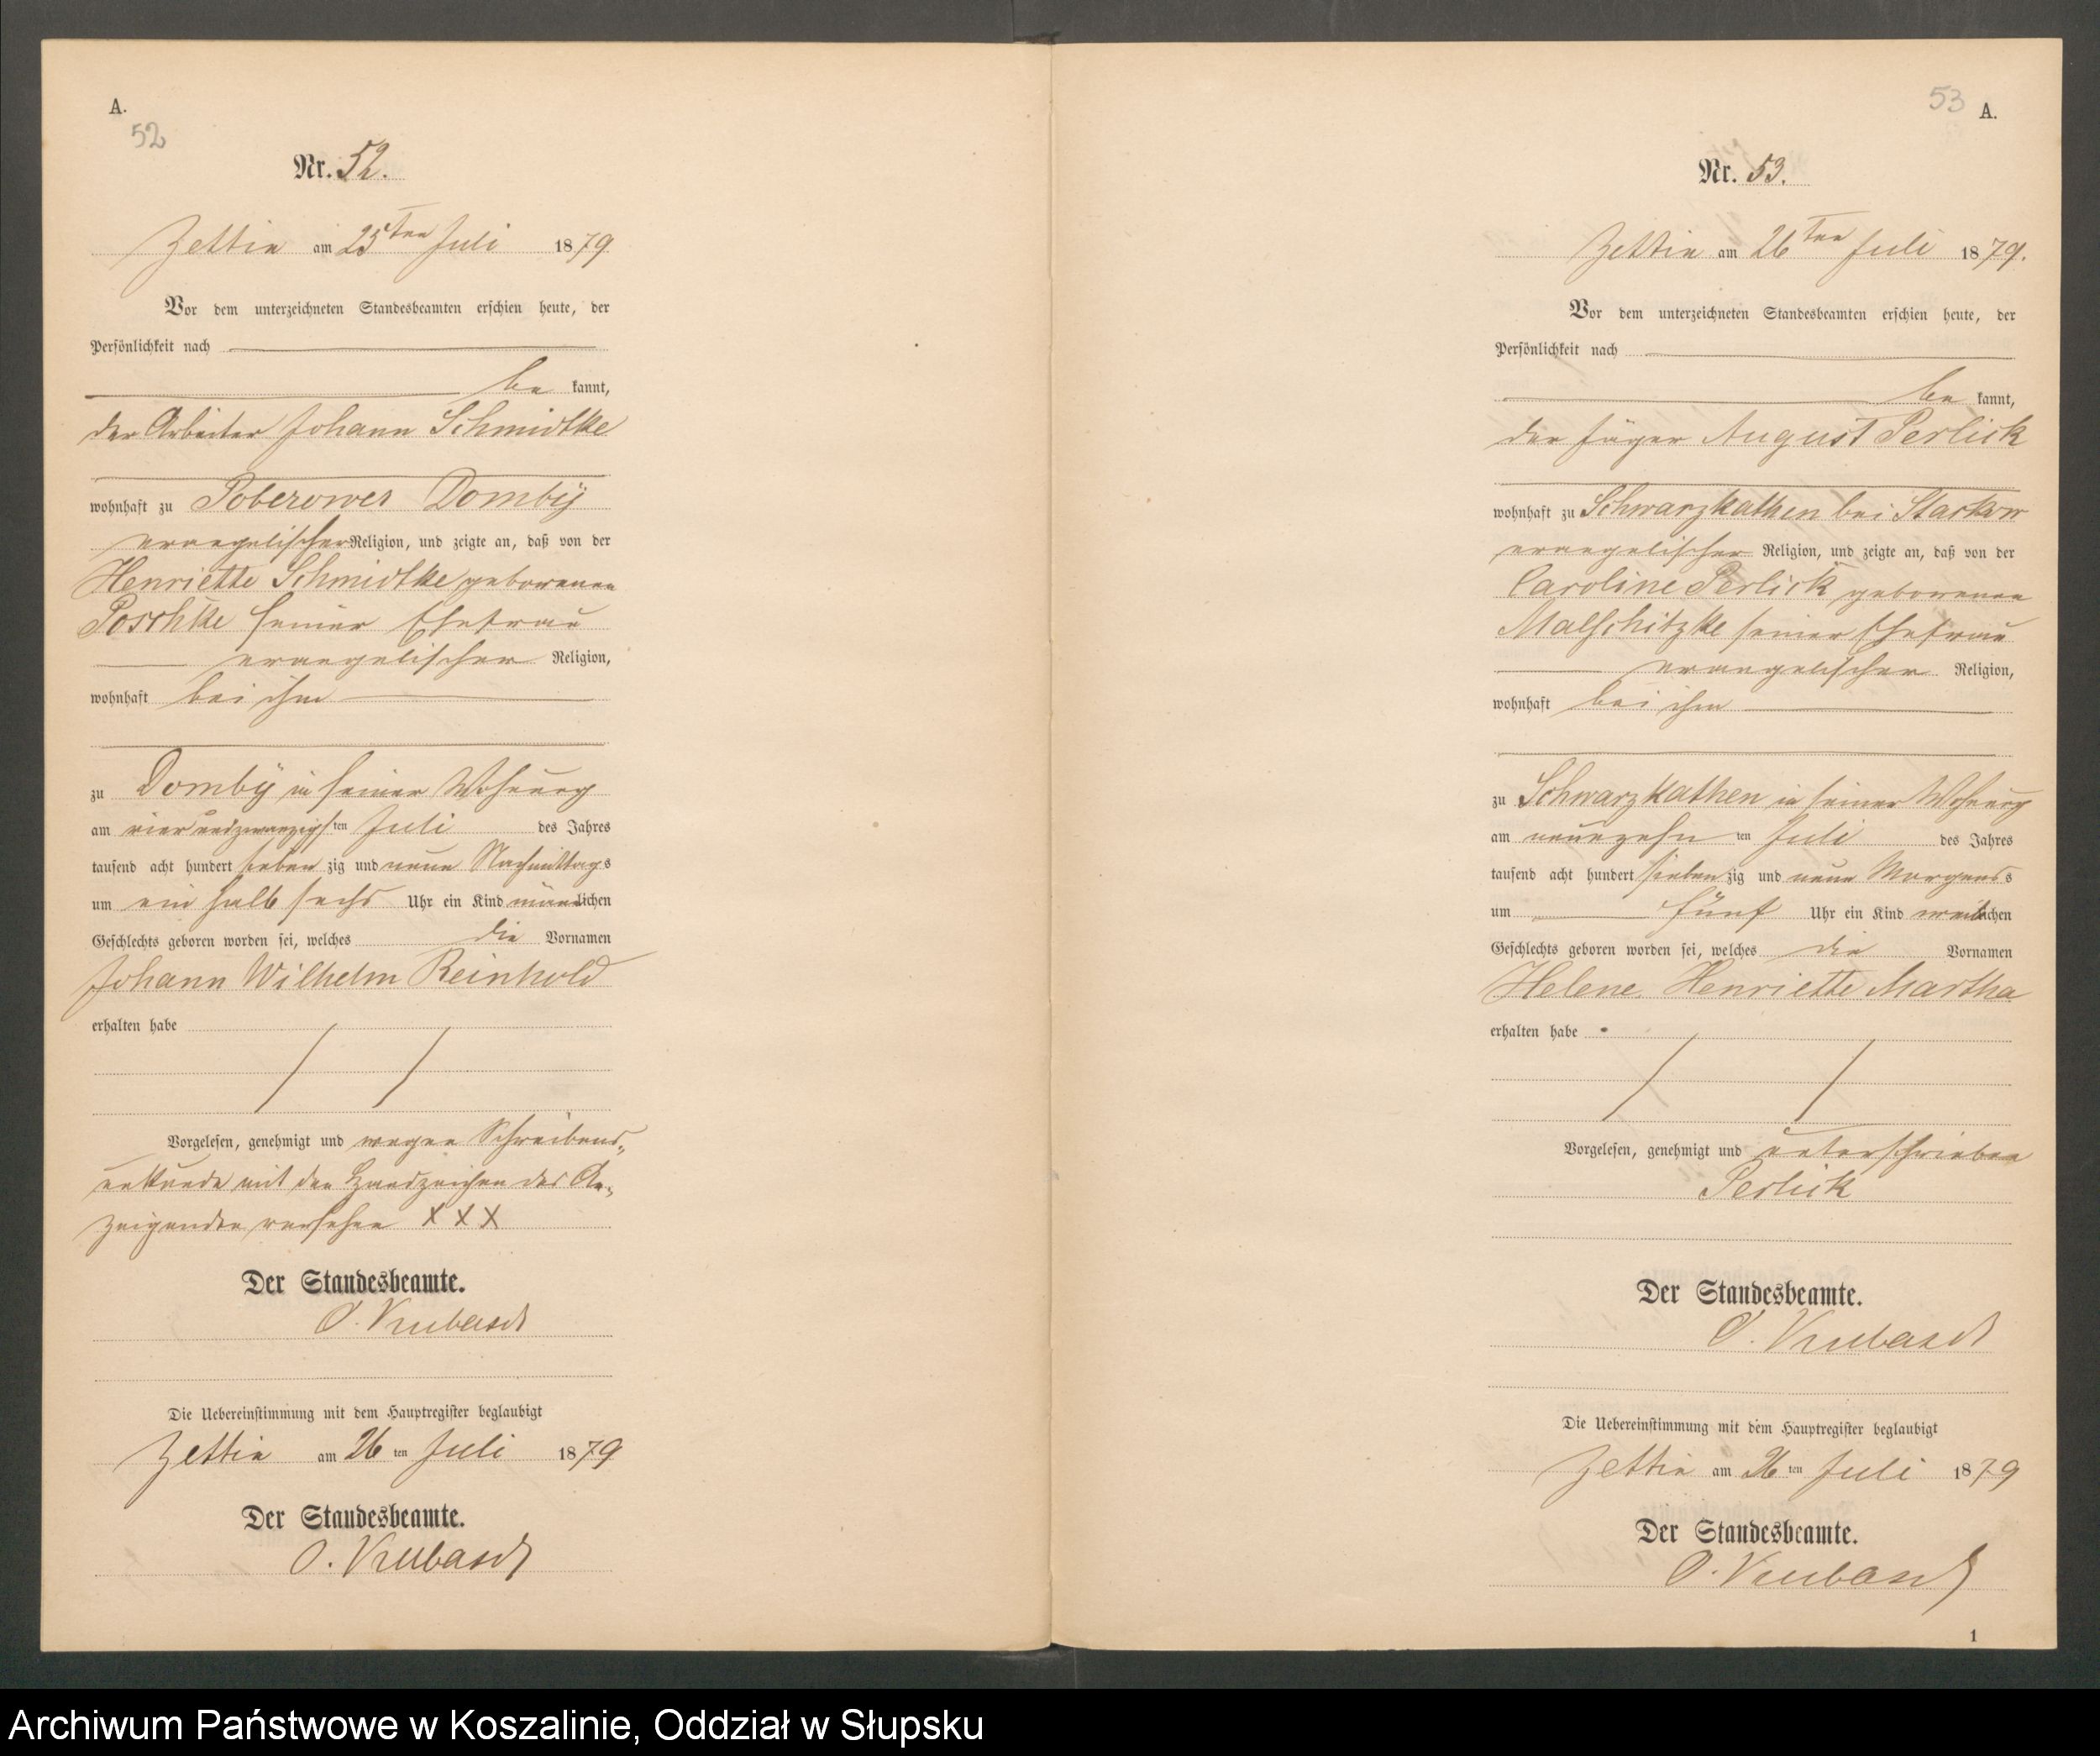 A.
52
Nr. 52.
Zettin am 25ten Juli 1879.
Vor dem unterzeichneten Standesbeamten erschien heute, der
Persönlichkeit nach
be kannt,
der Arbeiter Johann Schmidtke
wohnhaft zu Poberower Domby
evangelischer Religion, und zeigte an, daß von der
Henriette Schmidtke geborenen
Poschke seiner Ehefrau
evangelischer Religion,
wohnhaft bei ihm
zu Domby in seiner Wohnung
am vierundzwanzigsten Juli des Jahres
tausend acht hundert siebenzig und neun Nachmittags
um ein halb sechs Uhr ein Kind männlichen
Geschlechts geboren worden sei, welches die Vornamen
Johann Wilhelm Reinhold
erhalten habe
Vorgelesen, genehmigt und wegen Schreibens-
unkunde mit den Handzeichen des An-
zeigenden versehen XXX
Der Standesbeamte.
O.
Die Uebereinstimmung mit dem Hauptregister beglaubigt
Zettin am 26ten Juli 1879
Der Standesbeamte.
O.
53
A.
Nr. 53.
Zettin am 26ten Juli 1879.
Vor dem unterzeichneten Standesbeamten erschien heute, der
Persönlichkeit nach
be kannt,
der Jäger August Perlick
wohnhaft zu Schwarzkathen bei Starkow
evangelischer Religion, und zeigte an, daß von der
Caroline Perlick geborenen
Malschitzke seiner Ehefrau
evangelischer Religion,
wohnhaft bei ihm
zu Schwarzkathen in seiner Wohnung
am neunzehnten Juli des Jahres
tausend acht hundert siebenzig und neun Morgens
um fünf Uhr ein Kind weiblichen
Geschlechts geboren worden sei, welches die Vornamen
Helene Henriette Martha
erhalten habe
Vorgelesen, genehmigt und unterschrieben
Perlick
Der Standesbeamte.
O.
Die Uebereinstimmung mit dem Hauptregister beglaubigt
Zettin am 26ten Juli 1879
Der Standesbeamte.
O.
1
Archiwum Państwowe w Koszalinie, Oddział w Słupsku